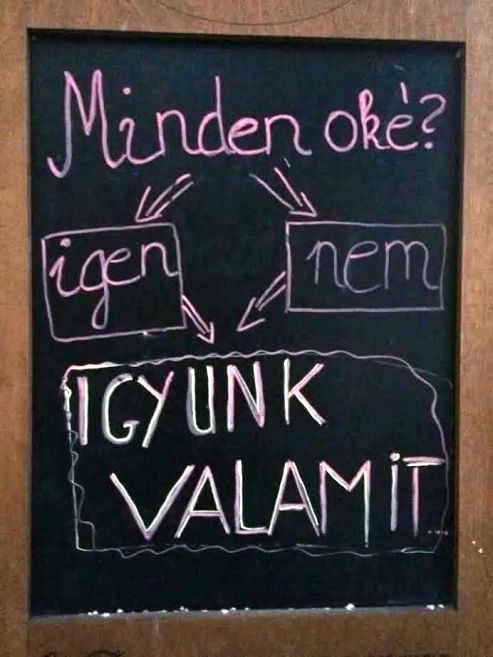 Minden oké?
igen
nem
IGYUNK
VALAMIT